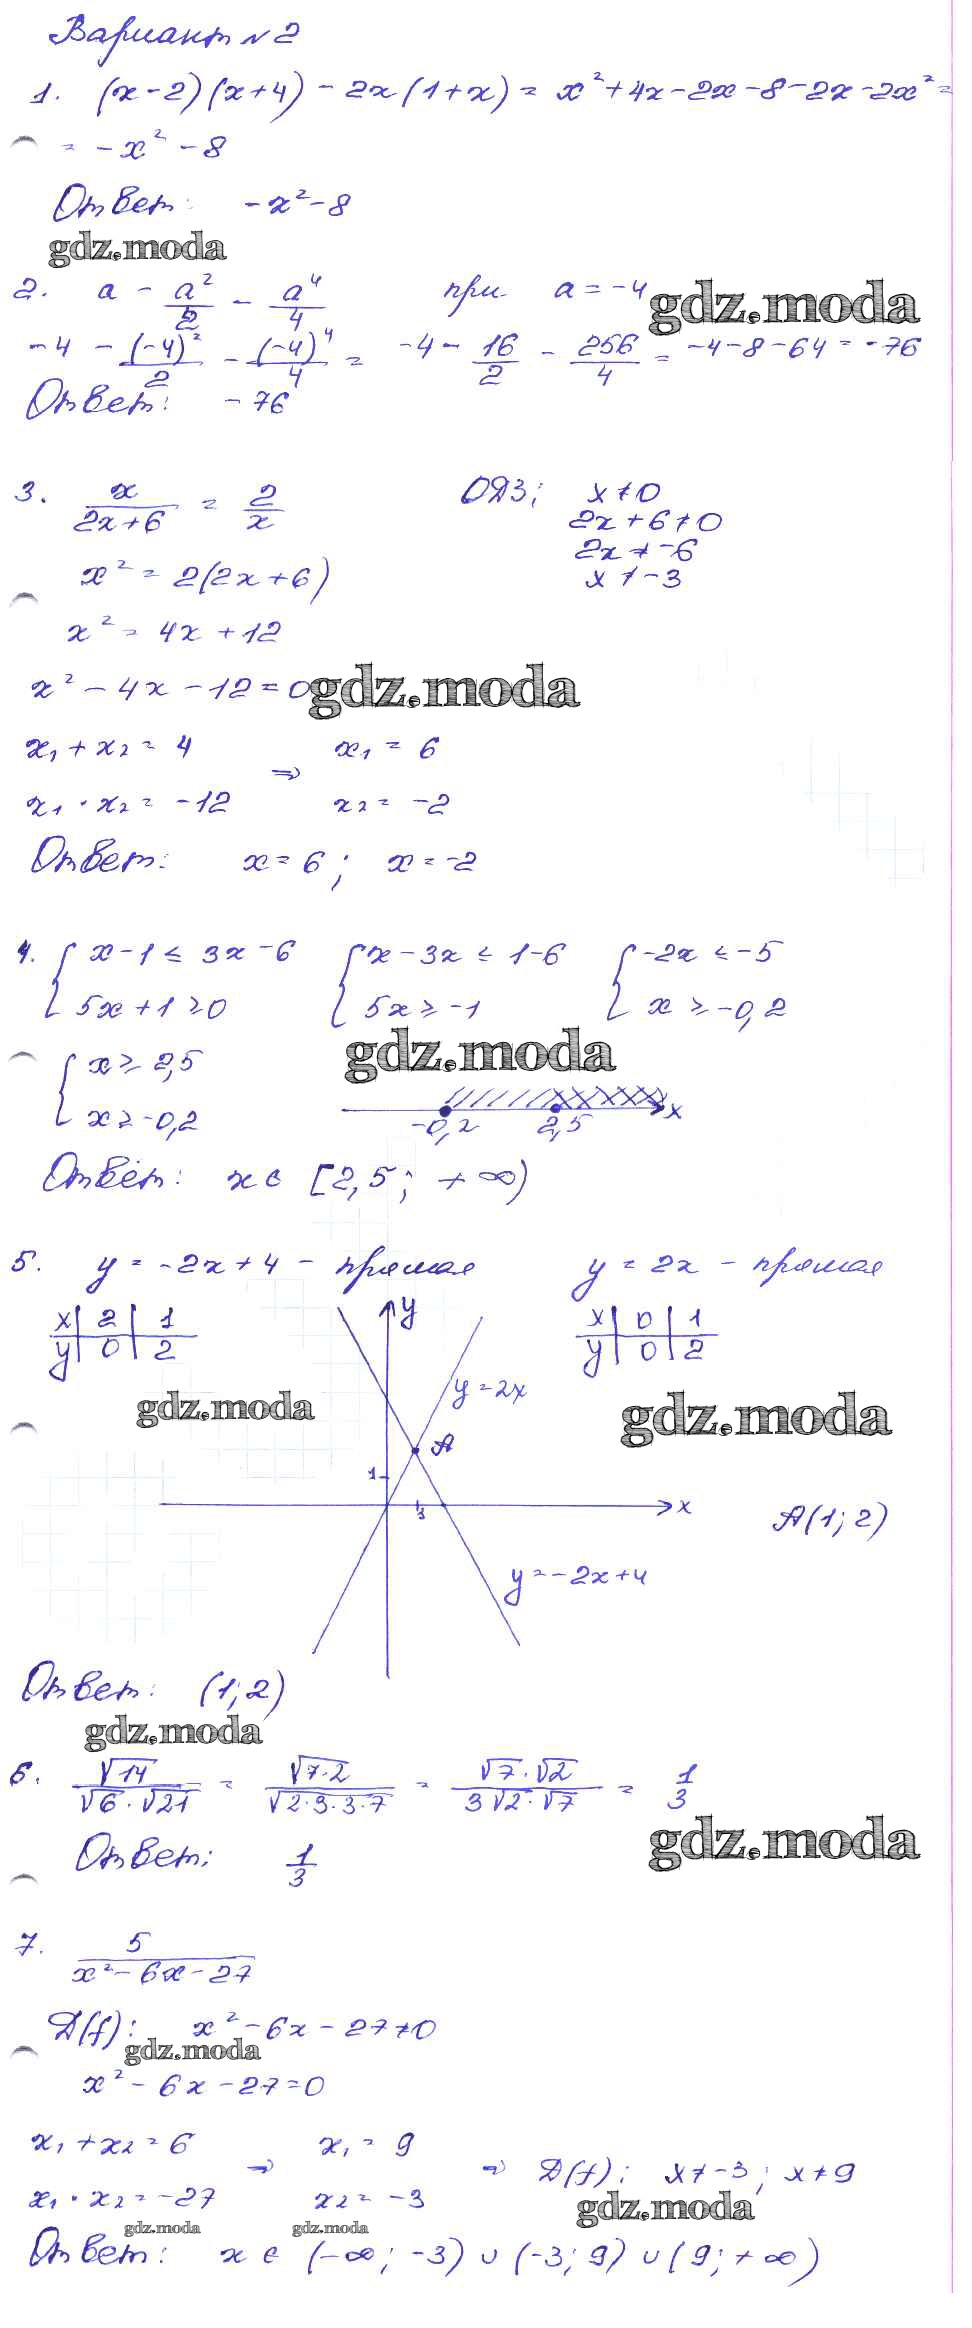 Вариант №2
1. (x-2)(x+4) - 2x(1+x) = x²+4x-2x-8-2x-2x² =
= -x² - 8
Ответ: -x²-8
gdz.moda
2. a - a²/2 - a⁴/4 при a = -4
gdz.moda
-4 - (-4)²/2 - (-4)⁴/4 = -4 - 16/2 - 256/4 = -4-8-64 = -76
Ответ: -76
3. x/(2x+6) = 2/x ОДЗ; x≠0
2x+6≠0
2x≠-6
x≠-3
x² = 2(2x+6)
x² = 4x+12
x² - 4x - 12 = 0
gdz.moda
x₁ + x₂ = 4 ⇒ x₁ = 6
x₁ · x₂ = -12 x₂ = -2
Ответ: x = 6; x = -2
4. { x-1 ≤ 3x-6 { x-3x ≤ 1-6 { -2x ≤ -5
5x+1 ≥ 0 5x ≥ -1 x ≥ -0,2
gdz.moda
{ x ≥ 2,5
x ≥ -0,2
-0,2 2,5 x
Ответ: x ∈ [2,5; +∞)
5. y = -2x+4 - прямая y = 2x - прямая
x | 2 | 1 x | 0 | 1
y | 0 | 2 y | 0 | 2
y
y=2x
gdz.moda
gdz.moda
A
1
3
x
A(1;2)
y=-2x+4
Ответ: (1;2)
gdz.moda
6. √14/(√6·√21) = √(7·2)/√(2·3·3·7) = √7·√2/(3√2·√7) = 1/3
gdz.moda
Ответ: 1/3
7. 5/(x²-6x-27)
D(f): x²-6x-27≠0
gdz.moda
x²-6x-27=0
x₁+x₂=6 ⇒ x₁=9 ⇒ D(f): x≠-3; x≠9
x₁·x₂=-27 x₂=-3
gdz.moda
gdz.moda gdz.moda
Ответ: x ∈ (-∞; -3) ∪ (-3; 9) ∪ (9; +∞)